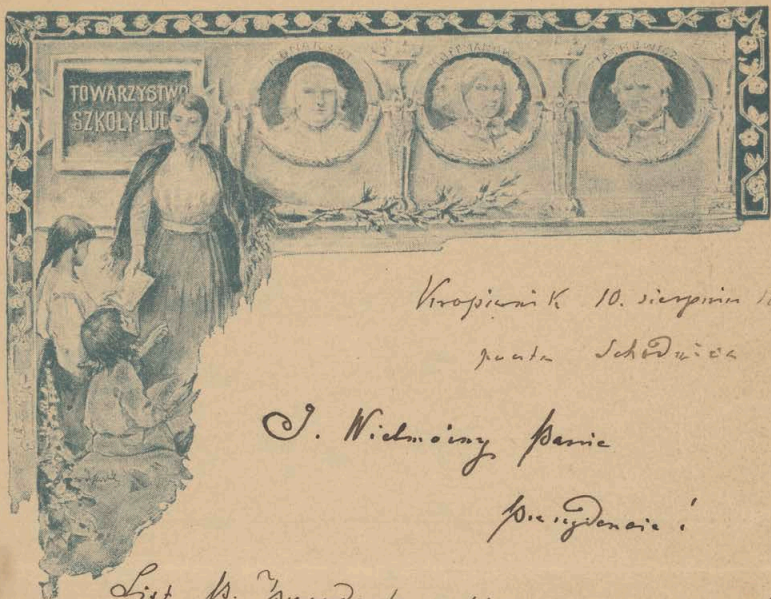 TOWARZYSTWO
SZKOŁY LUD
Kropiwnik 10. sierpnia
poczta Schodnica
J. Wielmożny Panie
Prezydencie!
List P.